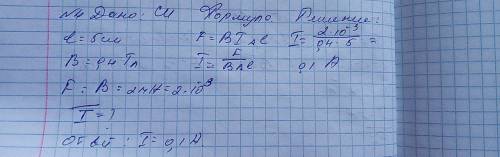 №4 Дано: СИ Формула Решение:
l = 5см F = BI∆l I = 2·10⁻³ / 0,4·5 =
B = 0,4 Тл I = F / B∆l 0,1 А
F = B = 2мН = 2·10⁻³
I = ?
Ответ: I = 0,1 А